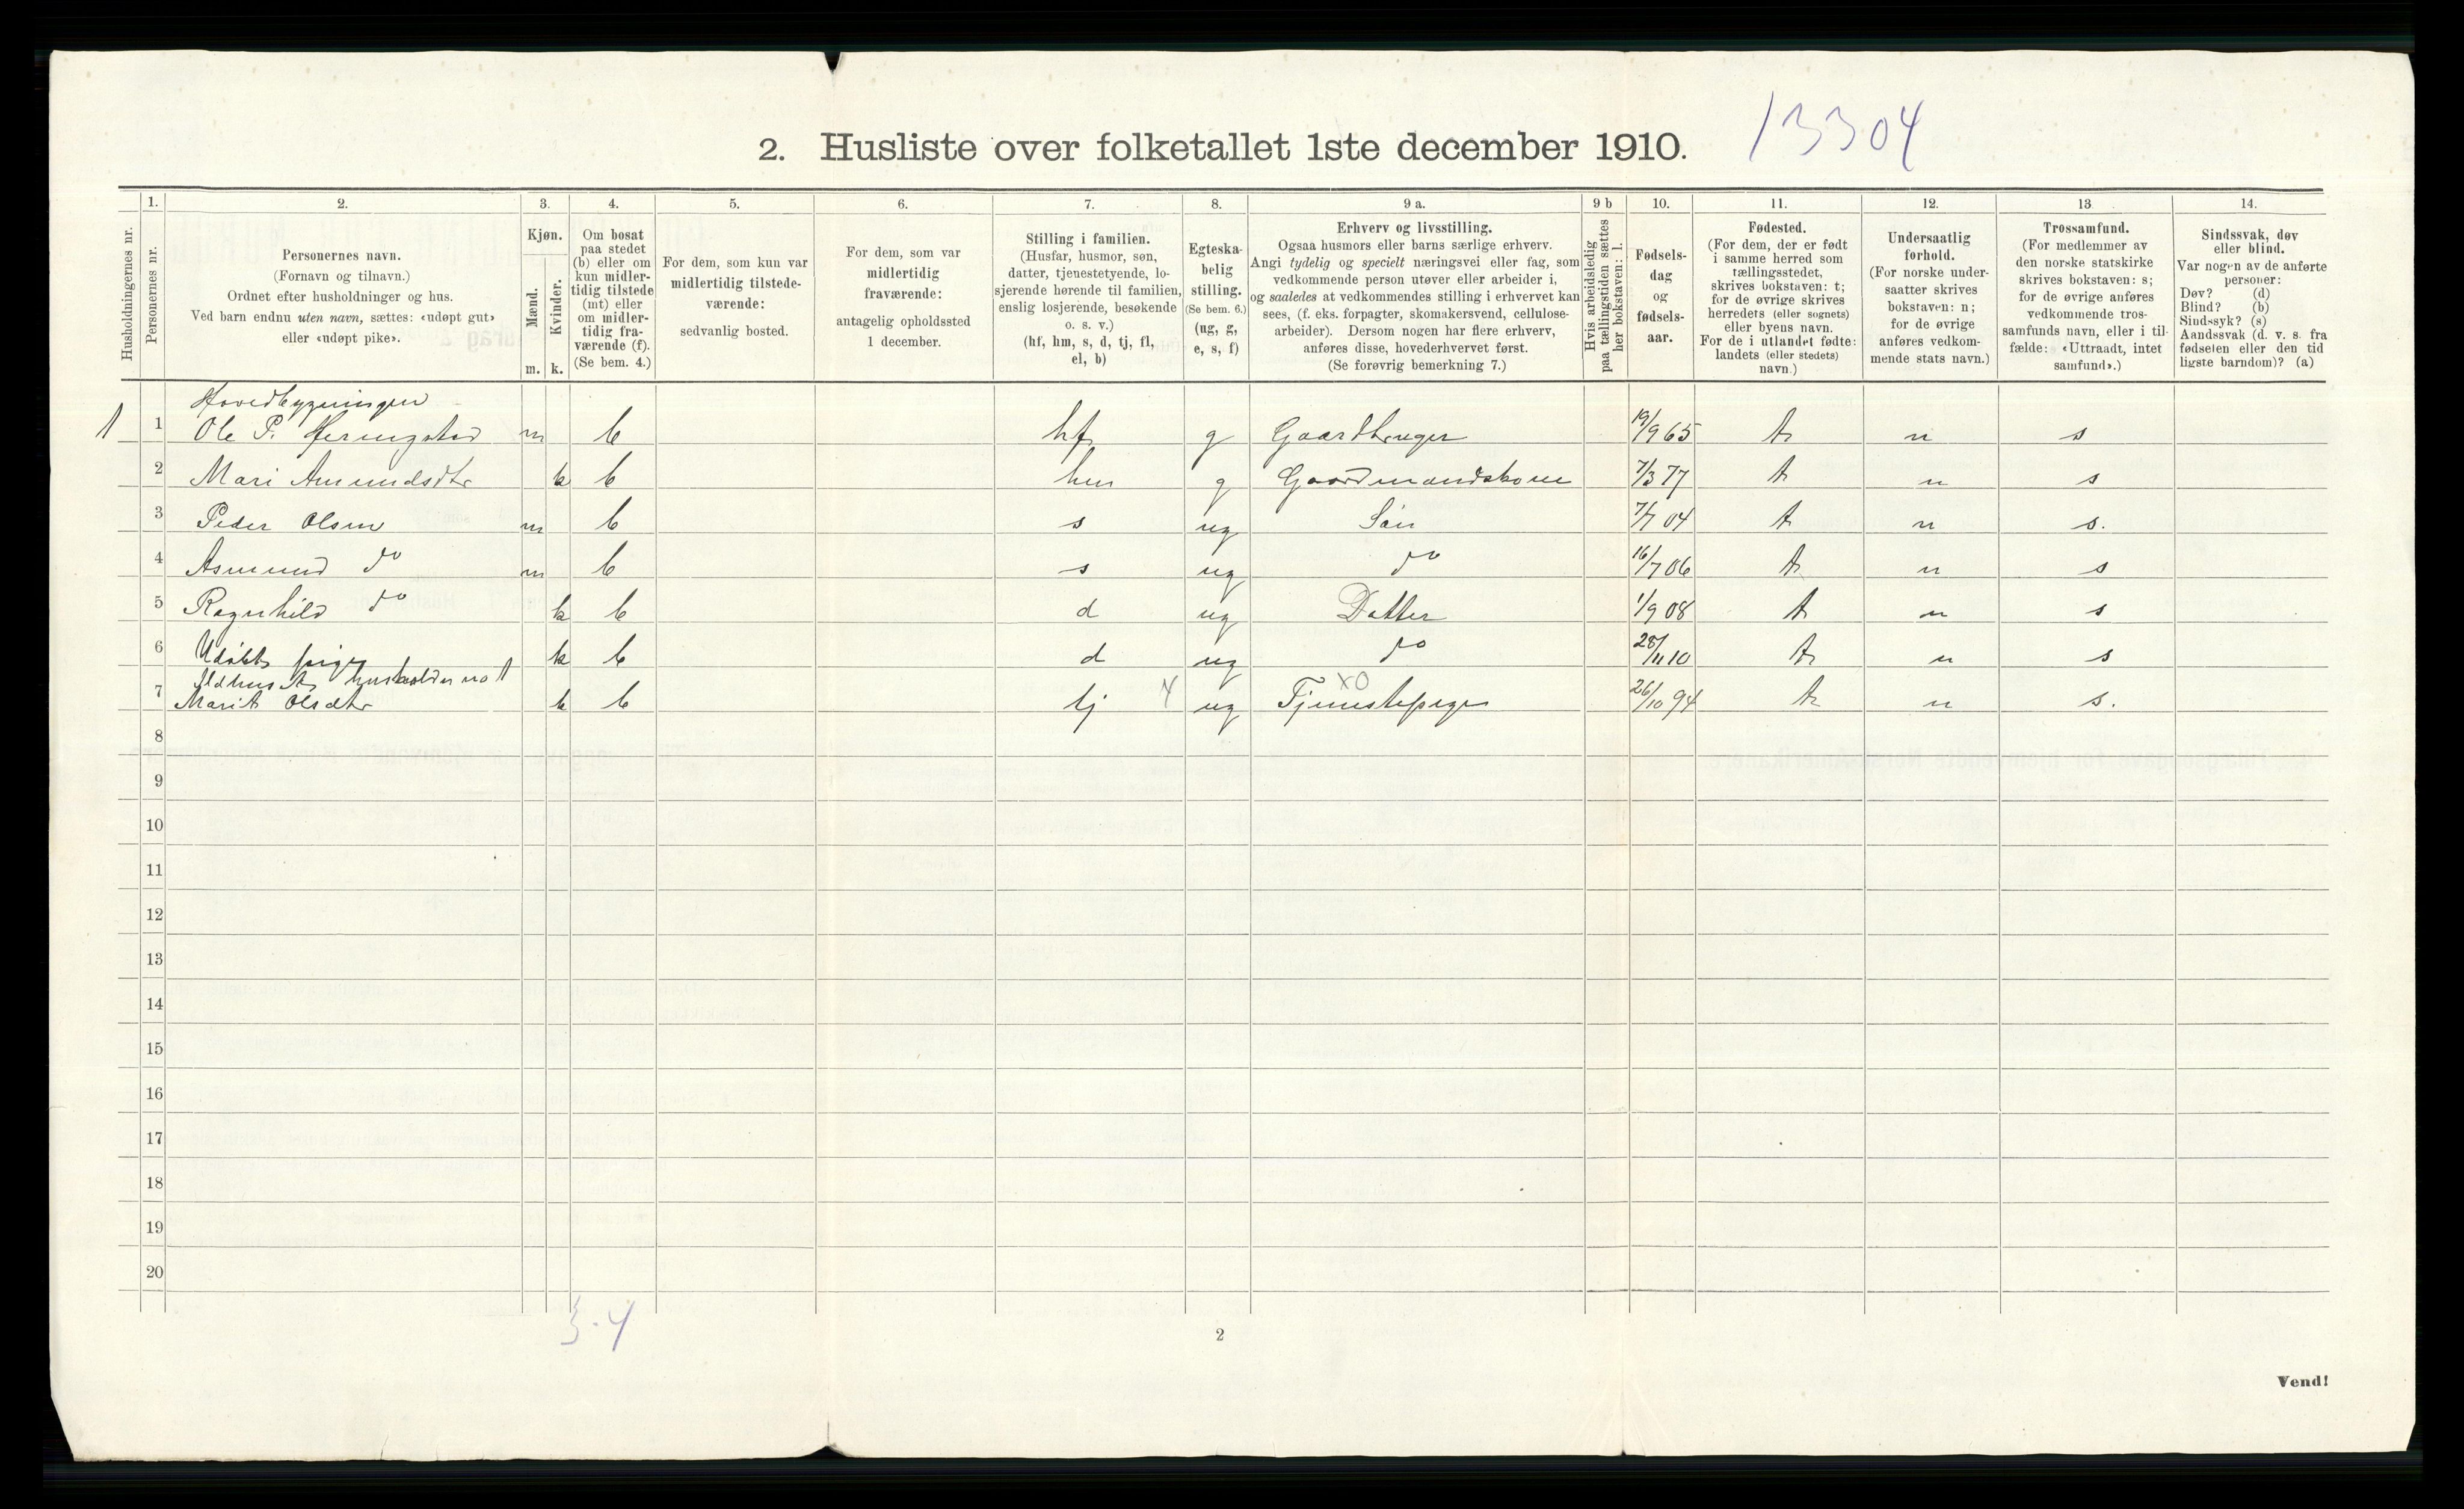 2. Husliste over folketallet 1ste december 1910. 13304
Husholdningernes nr.
1.
Personernes nr.
2.
Personernes navn.
(Fornavn og tilnavn.)
Ordnet efter husholdninger og hus.
Ved barn endnu uten navn, sættes: «udøpt gut»
eller «udøpt pike».
3.
Kjøn.
Mænd.
Kvinder.
m. k.
4.
Om bosat
paa stedet
(b) eller om
kun midler-
tidig tilstede
(mt) eller
om midler-
tidig fra-
værende (f).
(Se bem. 4.)
5.
For dem, som kun var
midlertidig tilstede-
værende:
sedvanlig bosted.
6.
For dem, som var
midlertidig
fraværende:
antagelig opholdssted
1 december.
7.
Stilling i familien.
(Husfar, husmor, søn,
datter, tjenestetyende, lo-
sjerende hørende til familien,
enslig losjerende, besøkende
o. s. v.)
(hf, hm, s, d, tj, fl,
el, b)
8.
Egteska-
belig
stilling.
(Se bem. 6.)
(ug, g,
e, s, f)
9 a.
Erhverv og livsstilling.
Ogsaa husmors eller barns særlige erhverv.
Angi tydelig og specielt næringsvei eller fag, som
vedkommende person utøver eller arbeider i,
og saaledes at vedkommendes stilling i erhvervet kan
sees, (f. eks. forpagter, skomakersvend, cellulose-
arbeider). Dersom nogen har flere erhverv,
anføres disse, hovederhvervet først.
(Se forøvrig bemerkning 7.)
9 b
Hvis arbeidsledig
paa tællingstiden sættes
her bokstaven: l.
10.
Fødsels-
dag
og
fødsels-
aar.
11.
Fødested.
(For dem, der er født
i samme herred som
tællingsstedet,
skrives bokstaven: t;
for de øvrige skrives
herredets (eller sognets)
eller byens navn.
For de i utlandet fødte:
landets (eller stedets)
navn.)
12.
Undersaatlig
forhold.
(For norske under-
saatter skrives
bokstaven: n;
for de øvrige
anføres vedkom-
mende stats navn.)
13
Trossamfund.
(For medlemmer av
den norske statskirke
skrives bokstaven: s;
for de øvrige anføres
vedkommende tros-
samfunds navn, eller i til-
fælde: «Uttraadt, intet
samfund».)
14.
Sindssvak, døv
eller blind.
Var nogen av de anførte
personer:
Døv? (d)
Blind? (b)
Sindssyk? (s)
Aandssvak (d. v. s. fra
fødselen eller den tid
ligste barndom)? (a)
Hovedbygningen
1 1 Ole P. m b hf g Gaardbruger 19/9 65 t n s
2 Mari Amundsdtr k b hm g Gaardmandskone 7/3 77 t n s
3 Peder Olsen m b s ug Søn 7/7 04 t n s.
4 Asmund do m b s ug do 16/7 06 t n s
5 Ragnhild do k b d ug Datter 1/9 08 t n s
6 Udøbt pige k b d ug do 28/11 10 t n s
Ildhuset husholdn no 1
7 Marit Olsdtr k b tj 4 ug Tjenestepige xo 26/10 94 t n s.
8
9
10
11
12
13
14
15
16
17
18
19
20
3-4
2
Vend!